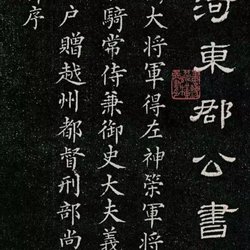 河東郡公書
大將軍得左神策軍將
騎常侍兼御史大夫義
户贈越州都督刑部尚
序